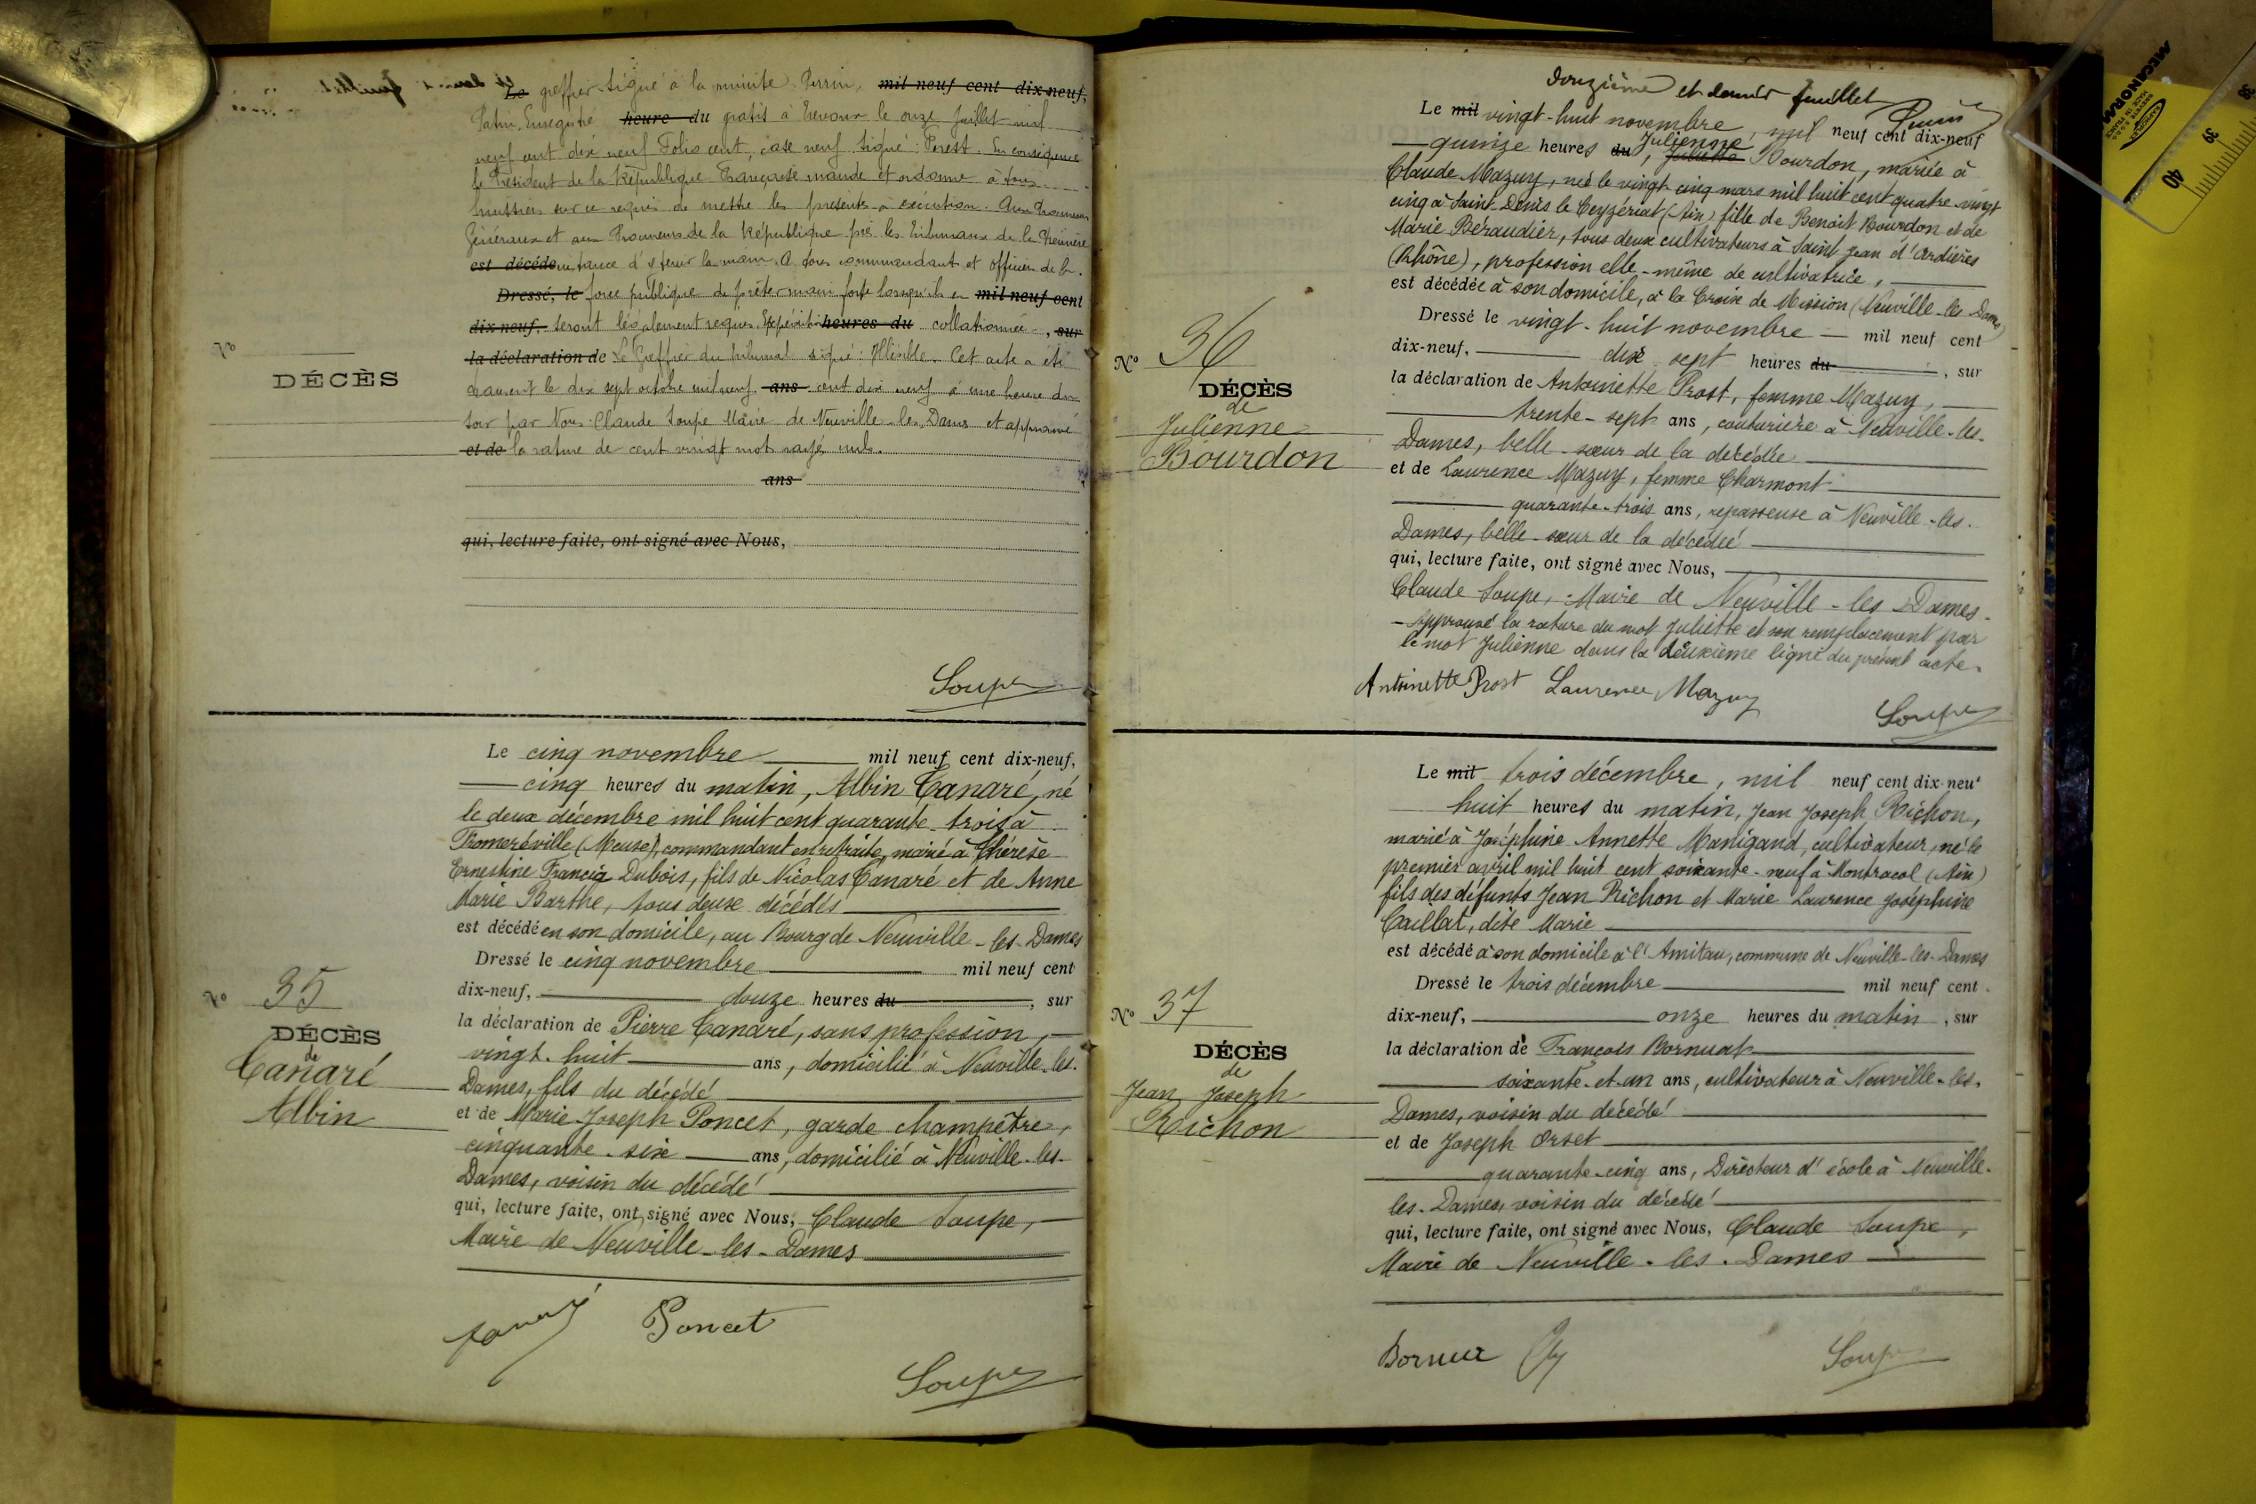 Le greffier signé à la minute Perrin, mil neuf cent dix-neuf,
Patin. Enregistré heure du gratis à Trévoux le onze Juillet mil
neuf cent dix neuf Folio cent, case neuf signé : Perest. En conséquence
le Président de la République Française mande et ordonne à tous
huissiers sur ce requis de mettre les présentes à exécution. Aux Procureurs
Généraux et aux Procureurs de la République près les Tribunaux de la Première
est décédé instance d'y tenir la main. A tous commandant et officiers de la
Dressé, le force publique de prêter main forte lorsqu'ils en mil neuf cent
dix-neuf, seront légalement requis. Expédition heures du collationnée, sur
la déclaration de Le Greffier du tribunal signé : Illisible. Cet acte a été
le dix sept octobre mil neuf ans cent dix neuf à une heure du
soir par Nous Claude Soupe Maire de Neuville-les-Dames et approuvé
et de la rature de cent vingt mot rayés nuls.
ans
qui, lecture faite, ont signé avec Nous,
No
DÉCÈS
Soupe
No 35
DÉCÈS
de
Canaré
Albin
Le cinq novembre mil neuf cent dix-neuf,
cinq heures du matin, Albin Canaré, né
le deux décembre mil huit cent quarante-trois à
Fromeréville (Meuse), commandant en retraite, marié à Thérèse
Ernestine Francia Dubois, fils de Nicolas Canaré et de Anne
Marie Barthe, tous deux décédés
est décédé en son domicile, au Bourg de Neuville-les-Dames
Dressé le cinq novembre mil neuf cent
dix-neuf, douze heures du, sur
la déclaration de Pierre Canaré, sans profession,
vingt-huit ans, domicilié à Neuville-les-
Dames, fils du décédé
et de Marie Joseph Poncet, garde champêtre,
cinquante-six ans, domicilié à Neuville-les-
Dames, voisin du décédé
qui, lecture faite, ont signé avec Nous, Claude Soupe,
Maire de Neuville-les-Dames
Canaré Poncet
Soupe
douzième et dernier feuillet
Perrin
No 36
DÉCÈS
de
Julienne
Bourdon
Le mil vingt-huit novembre, mil neuf cent dix-neuf
Julienne
quinze heures du, Juliette Bourdon, mariée à
Claude Mazuy, née le vingt-cinq mars mil huit cent quatre-vingt
cinq à Saint Denis le Ceyzériat (Ain) fille de Benoit Bourdon et de
Marie Béraudier, tous deux cultivateurs à Saint Jean d'Ardières
(Rhône), profession elle-même de cultivatrice,
est décédée à son domicile, à la Croix de Mission (Neuville-les-Dames)
Dressé le vingt-huit novembre mil neuf cent
dix-neuf, dix sept heures du, sur
la déclaration de Antoinette Prost, femme Mazuy,
trente-sept ans, couturière à Neuville-les-
Dames, belle-sœur de la décédée
et de Laurence Mazuy, femme Charmont
quarante-trois ans, repasseuse à Neuville-les-
Dames, belle-sœur de la décédée
qui, lecture faite, ont signé avec Nous,
Claude Soupe, Maire de Neuville-les Dames-
- Approuvé la rature du mot Juliette et son remplacement par
le mot Julienne dans la deuxième ligne du présent acte.
Antoinette Prost Laurence Mazuy
Soupe
No 37
DÉCÈS
de
Jean Joseph
Richon
Le mil trois décembre, mil neuf cent dix-neuf
huit heures du matin, Jean Joseph Richon,
marié à Joséphine Annette Manigand, cultivateur, né le
premier avril mil huit cent soixante-neuf à Montracol (Ain)
fils des défunts Jean Richon et Marie Laurence Joséphine
Caillat, dite Marie
est décédé à son domicile à l'Amitau, commune de Neuville-les-Dames
Dressé le trois décembre mil neuf cent
dix-neuf, onze heures du matin, sur
la déclaration de François Bornuat
soixante-et-un ans, cultivateur à Neuville-les-
Dames, voisin du décédé
et de Joseph Orset
quarante-cinq ans, Directeur d'école à Neuville-
les-Dames, voisin du décédé
qui, lecture faite, ont signé avec Nous, Claude Soupe,
Maire de Neuville-les-Dames
Soupe
MECANORMA
40
39
38